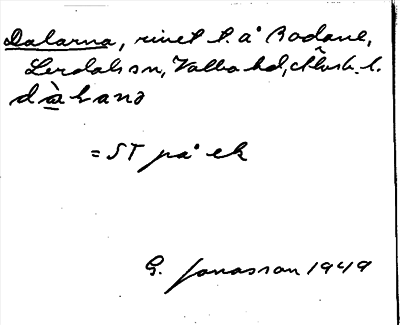 Dalarna, rivet t. å Bodane,
Lerdals sn, Valbo hd, Älvsb. l.
dàLana
= ST på ek
G. Jonasson 1949